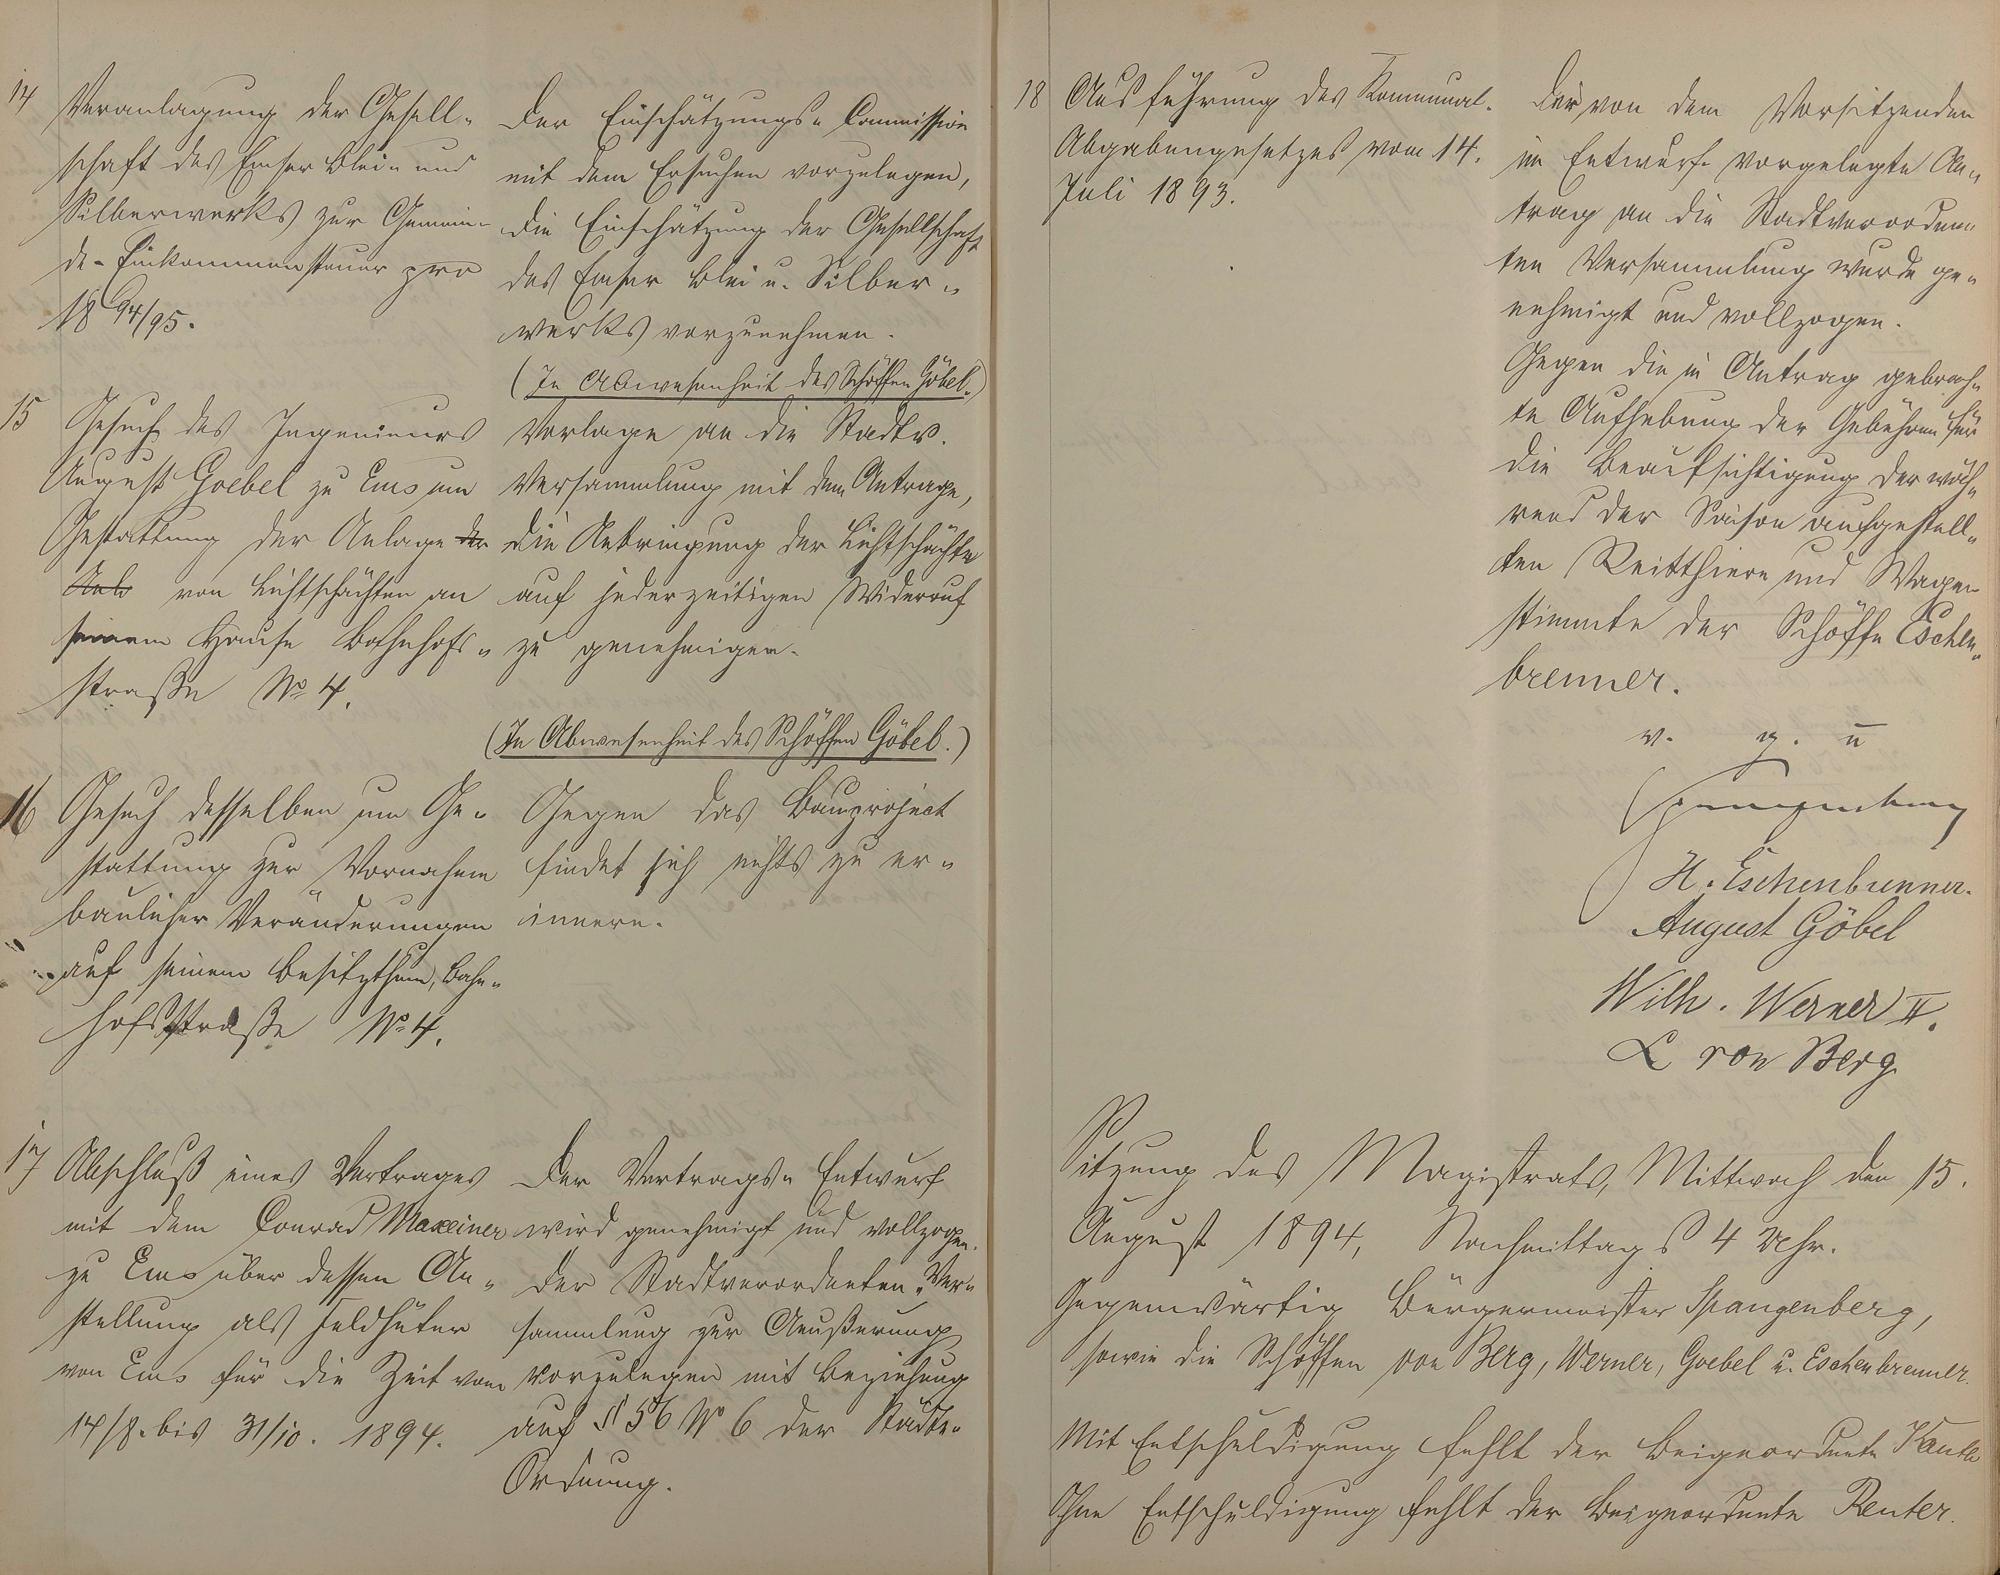 14
Veranlagung der Gesell-
schaft des Emser Blei- und
Silberwerks zur Gemein-
de-Einkommensteuer pro
1894/95.
Der Einschätzungs-Commission
mit dem Ersuchen vorzulegen,
die Einschätzung der Gesellschaft
des Emser Blei u. Silber-
werks vorzunehmen.
(In Abwesenheit des Schöffen Göbel.)
15
Gesuch des Ingenieurs
August Goebel zu Ems um
Gestattung der Anlage der
von Lichtschächten an
seinem Hause Bahnhofs-
straße No 4.
Vorlage an die Stadtv.
Versammlung mit dem Antrage,
die Anbringung der Lichtschächte
auf jederzeitigen Widerruf
zu genehmigen.
(In Abwesenheit des Schöffen Göbel.)
16
Gesuch desselben um Ge-
stattung zur Vornahme
baulicher Veränderungen
auf seinem Besitzthum, Bahn-
hofsstraße No 4.
Gegen das Bauproject
findet sich nichts zu er-
innern.
17
Abschluß eines Vertrages
mit dem Conrad Maxeiner
zu Ems über dessen An-
stellung als Feldhüter
von Ems für die Zeit vom
14/8. bis 31/10. 1894.
Der Vertrags-Entwurf
wird genehmigt und vollzogen.
Der Stadtverordneten-Ver-
sammlung zur Aeußerung
vorzulegen mit Beziehung
auf § 56 No 6 der Städte-
Ordnung.
18
Ausführung des Kommunal-
Abgabengesetzes vom 14.
Juli 1893.
Der von dem Vorsitzenden
im Entwurf vorgelegte An-
trag an die Stadtverordne-
ten Versammlung wurde ge-
nehmigt und vollzogen.
Gegen die in Antrag gebrach-
te Aufhebung der Gebühren für
die Beaufsichtigung der wäh-
rend der Saison aufgestell-
ten Reitthiere und Wagen
stimmte der Schöffe Eschen-
brenner.
v. g. u
Spangenberg
H. Eschenbrenner.
August Göbel
Wilh. Werner II.
L von Berg
Sitzung des Magistrats, Mittwoch den 15.
August 1894, Nachmittags 4 Uhr.
Gegenwärtig Bürgermeister Spangenberg,
sowie die Schöffen von Berg, Werner, Goebel u. Eschenbrenner.
Mit Entschuldigung fehlt der Beigeordnete
Ohne Entschuldigung fehlt der Beigeordnete Reuter.